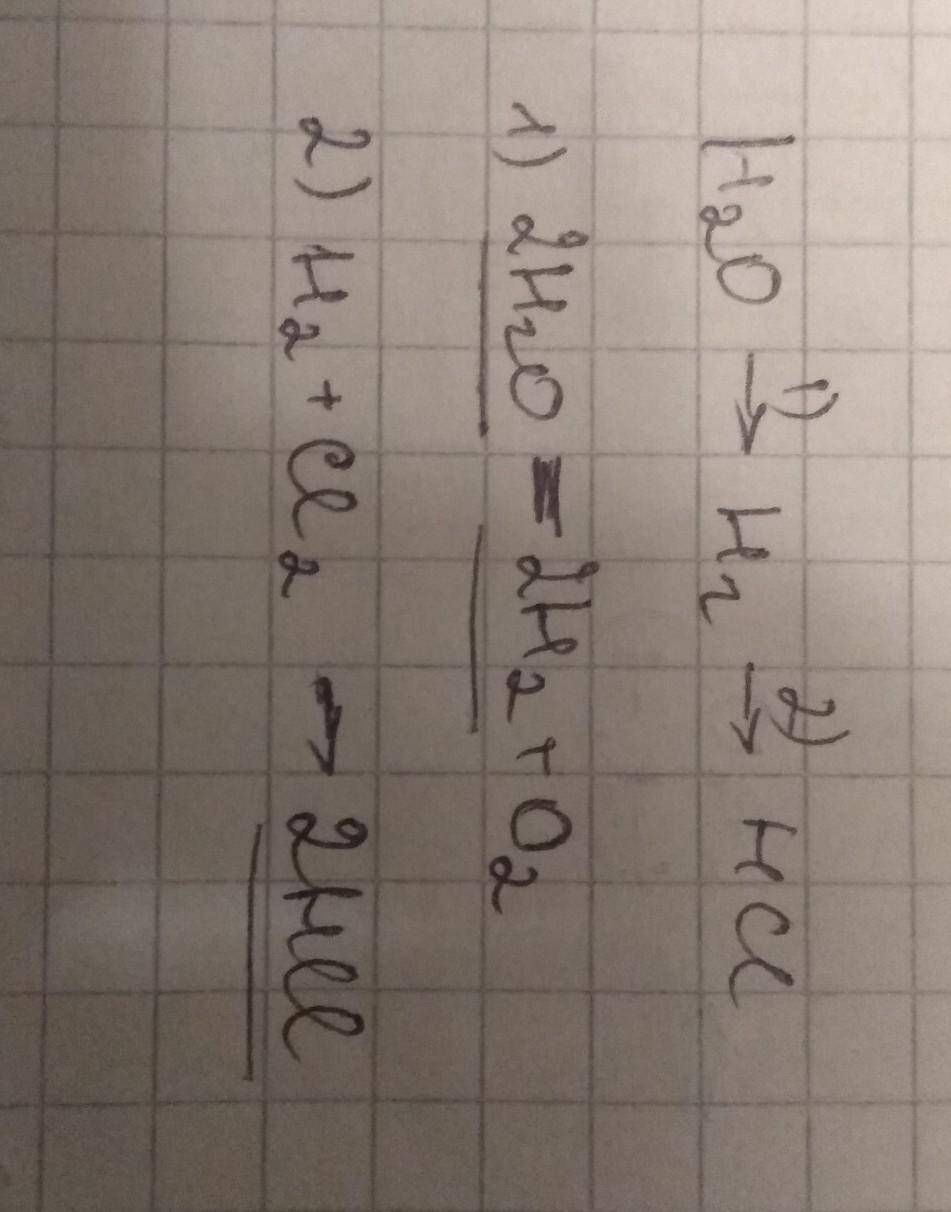 H₂O →¹⁾ H₂ →²⁾ HCl
1) 2H₂O = 2H₂ + O₂
2) H₂ + Cl₂ → 2HCl